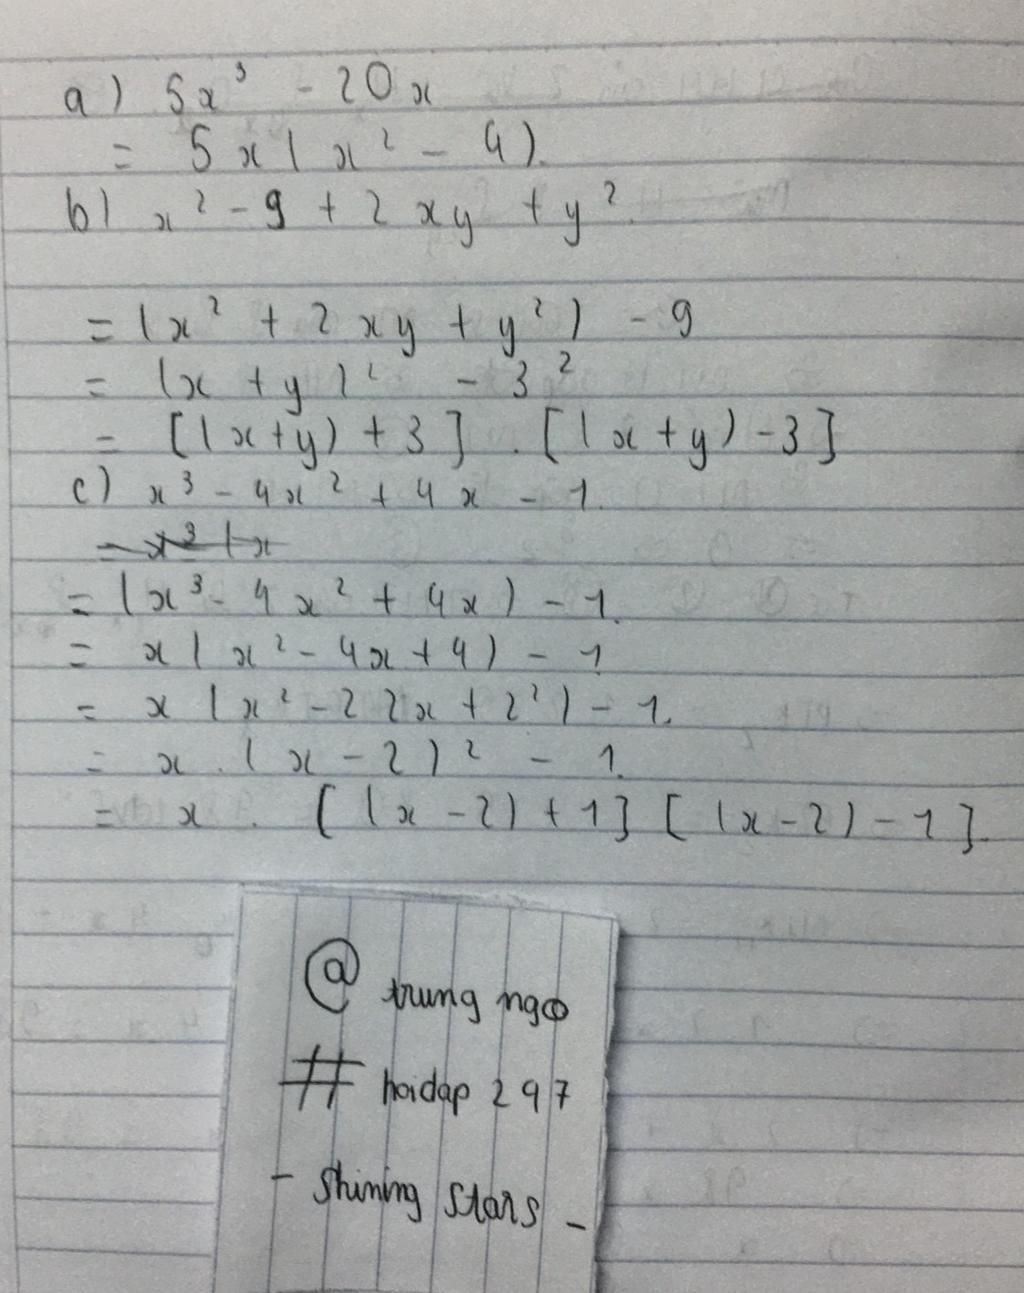 a) 5x³ - 20x
= 5x(x² - 4).
b) x² - 9 + 2xy + y².
= (x² + 2xy + y²) - 9
= (x + y)² - 3²
= [(x+y) + 3] . [(x+y) - 3]
c) x³ - 4x² + 4x - 1.
= (x³ - 4x² + 4x) - 1.
= x(x² - 4x + 4) - 1
= x(x² - 2 2x + 2²) - 1.
= x . (x - 2)² - 1.
= x . [(x - 2) + 1] [(x - 2) - 1].
@ trung ngo
# hoidap 297
- Shining Stars -